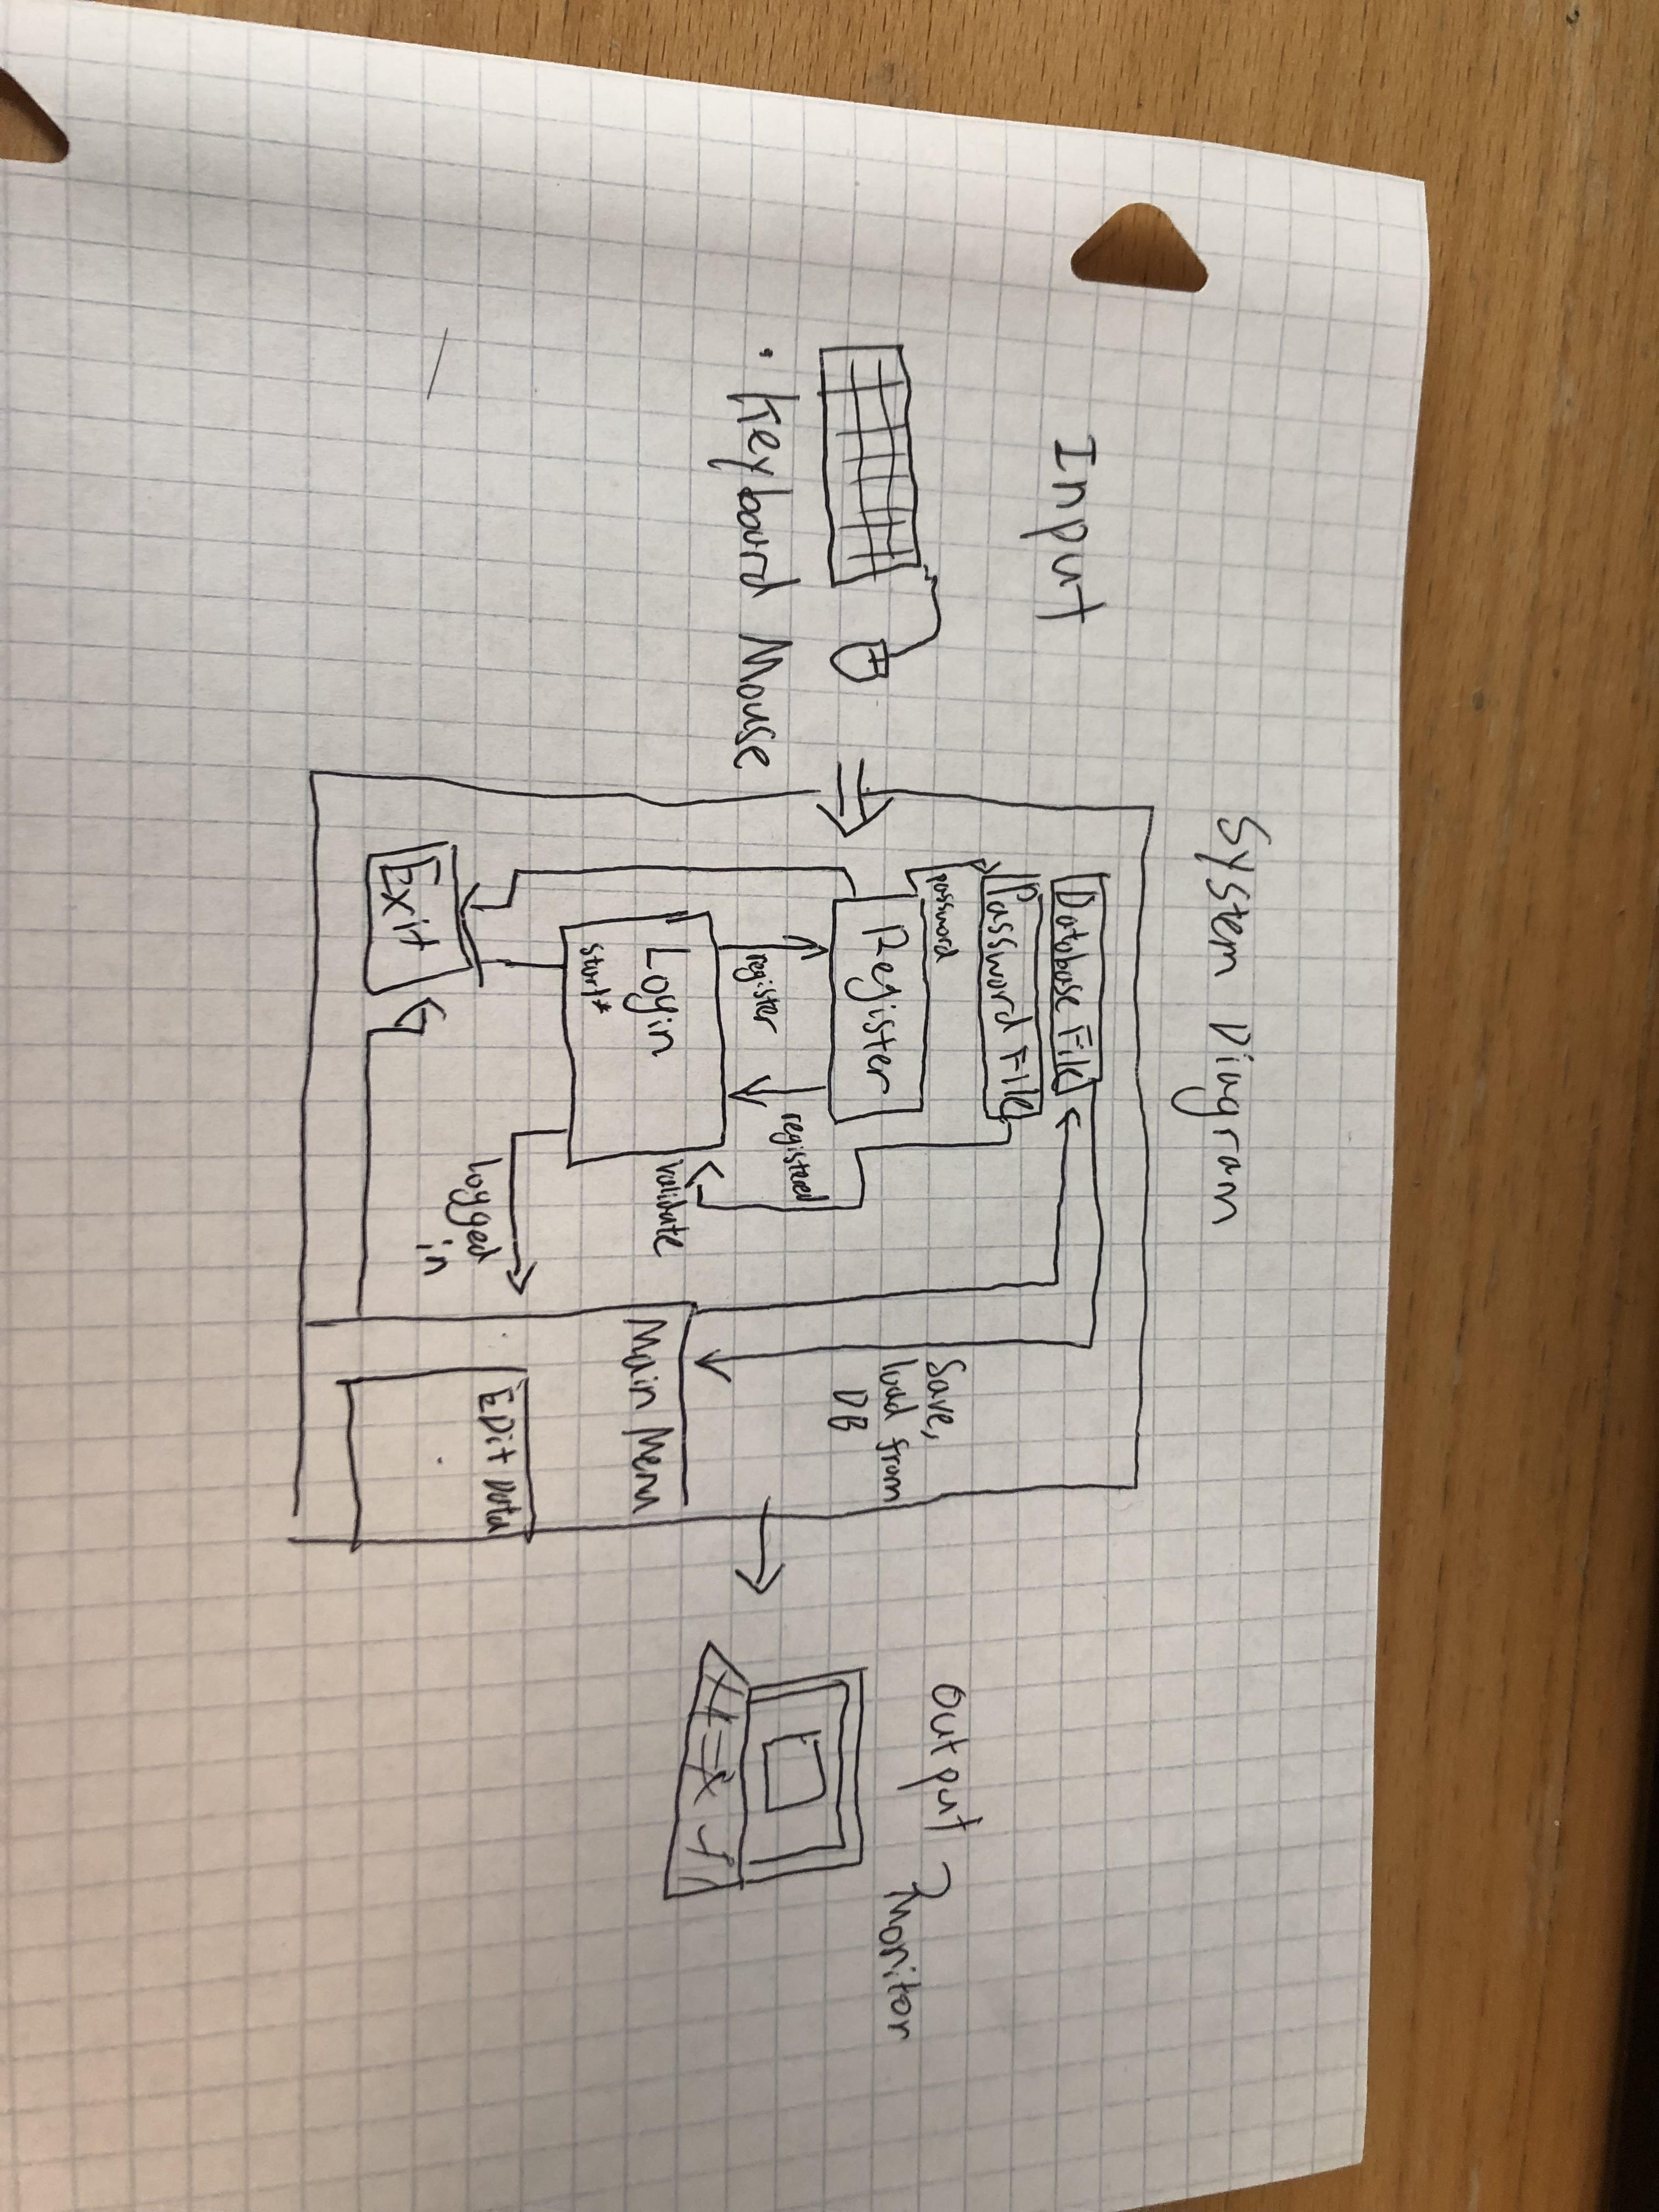 System Diagram
Input
Keyboard Mouse
Database File
Password File
password
Register
register
registered
Login
start*
validate
Exit
logged
in
Save,
load from
DB
Main Menu
EDit Data
Output
Monitor